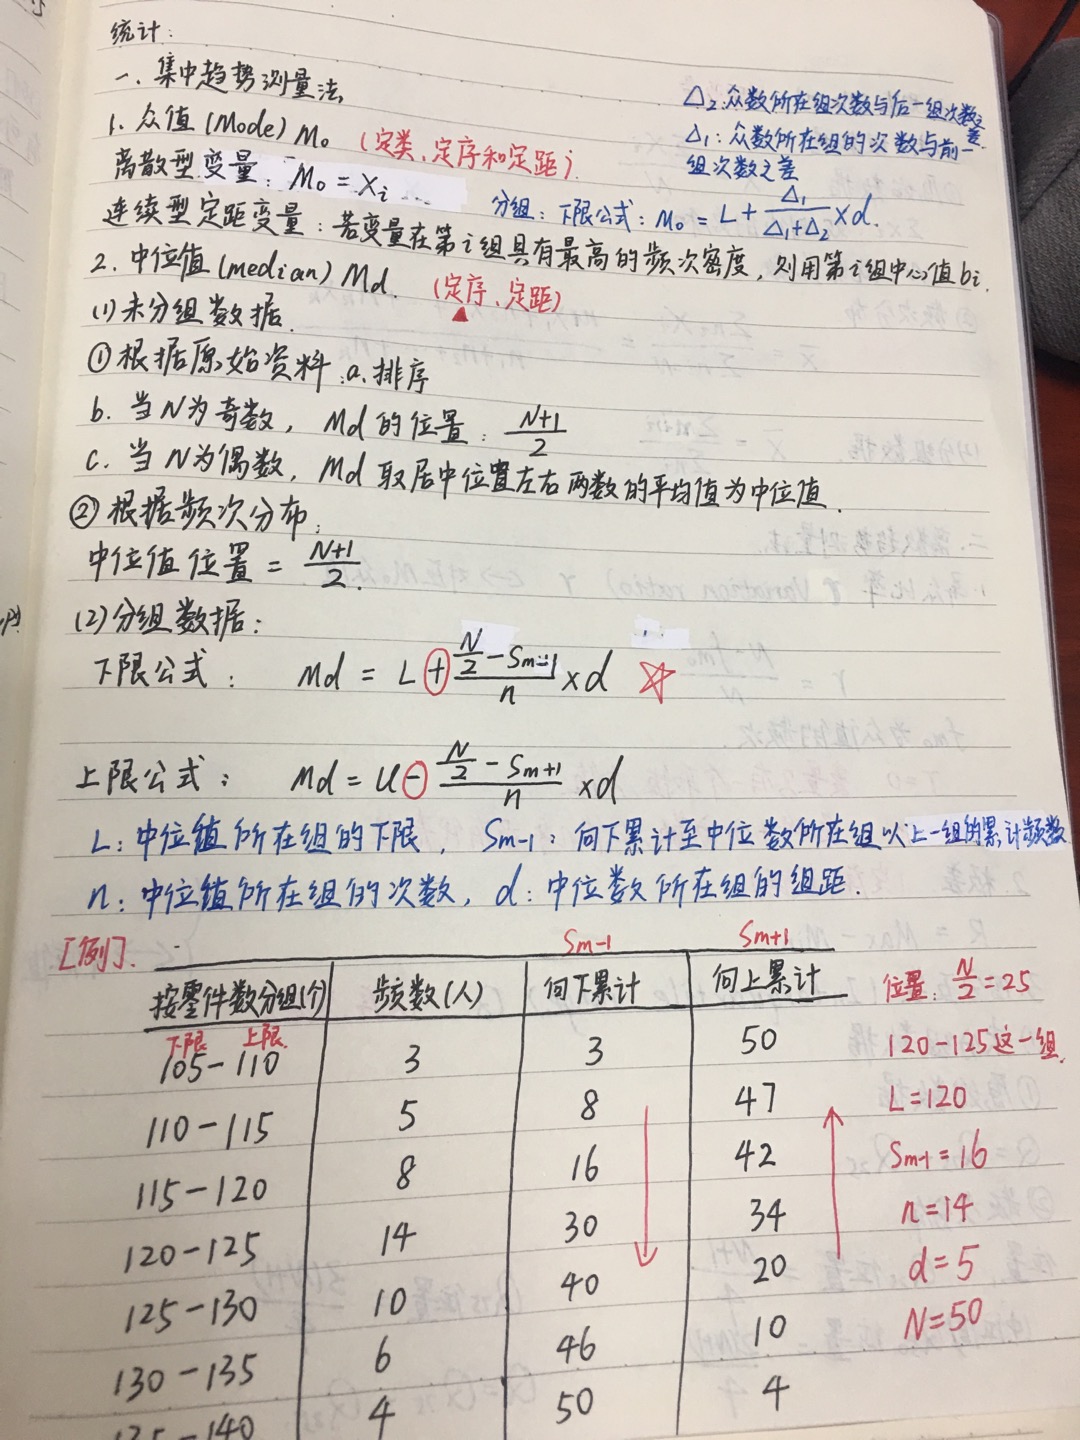 统计：
一、集中趋势测量法
1. 众值(Mode) Mo (定类、定序和定距)
Δ2:众数所在组次数与后一组次数之差
Δ1: 众数所在组的次数与前一
组次数之差
离散型变量: Mo = Xi
分组: 下限公式: Mo = L + Δ1/(Δ1+Δ2) × d.
连续型定距变量: 若变量在第i组具有最高的频次密度, 则用第i组中心值bi.
2. 中位值(median) Md. (定序、定距)
(1)未分组数据.
①根据原始资料: a.排序
b. 当N为奇数, Md的位置: (N+1)/2
c. 当N为偶数, Md取居中位置左右两数的平均值为中位值.
②根据频次分布:
中位值位置 = (N+1)/2.
(2)分组数据:
下限公式: Md = L + (N/2 - Sm-1)/n × d ☆
上限公式: Md = U - (N/2 - Sm+1)/n × d
L: 中位值所在组的下限, Sm-1: 向下累计至中位数所在组以上一组的累计频数
n: 中位值所在组的次数, d: 中位数所在组的组距.
[例].
Sm-1 Sm+1
按零件数分组(个) 频数(人) 向下累计 向上累计 位置: N/2 = 25
下限 上限
105-110 3 3 50 120-125这一组.
110-115 5 8 47 L=120
115-120 8 16 42 Sm-1=16
120-125 14 30 34 n=14
125-130 10 40 20 d=5
130-135 6 46 10 N=50
135-140 4 50 4